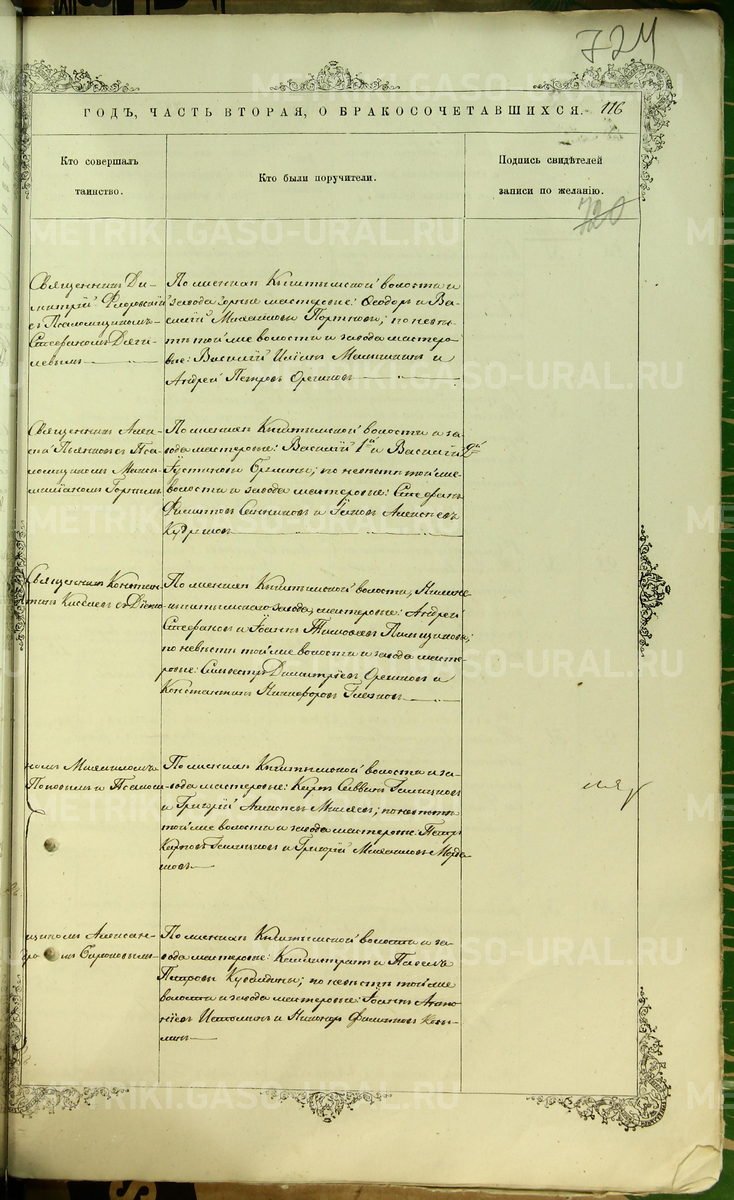 724
ГОДЪ, ЧАСТЬ ВТОРАЯ, О БРАКОСОЧЕТАВШИХСЯ. 116
Кто совершалъ
таинство.
Кто были поручители.
Подпись свидѣтелей
записи по желанію.
720
Священникъ Ди-
митрій Флоровскій
съ Псаломщикомъ
Стефаномъ Дяги-
левымъ
По женихѣ Кыштымской волости и
завода мастеровые: Ѳеодоръ и Ва-
силій Михаиловы Портновы; по невѣс-
тѣ той же волости и завода мастеро-
вые: Василій Иліинъ Машинкинъ и
Андрей Петровъ Орешковъ
Священникъ Алек-
сій съ Пса-
ломщикомъ Макси-
миліаномъ
По женихѣ Кыштымской волости и за-
вода мастеровые: Василій 1й и Василій 2й
Іустиновы; по невѣстѣ той же
волости и завода мастеровые: Стефанъ
Филиповъ и Іаковъ Алексѣевъ
Священникъ Констан-
тинъ Киселевъ съ Діако-
По женихѣ Кыштымской волости, Нижне-
кыштымскаго завода, мастеровые: Андрей
Стефановъ и Іоаннъ Тимоѳеевъ
по невѣстѣ той же волости и завода масте-
ровые: Сильвестръ Димитріевъ Орешковъ и
Константинъ Никифоровъ Глазковъ
номъ Михаиломъ
Поповымъ и Псалом-
По женихѣ Кыштымской волости и за-
вода мастеровые: Карпъ Саввинъ
и Григорій Алексѣевъ; по невѣстѣ
той же волости и завода мастеровые: Петръ
Карповъ и Григорій Михаиловъ
щикомъ Алексан-
дромъ
По женихѣ Кыштымской волости и за-
вода мастеровые: Каллистратъ и Павелъ
Петровы Кубалдины; по невѣстѣ той же
волости и завода мастеровые: Іоаннъ Анто-
ніевъ Истоминъ и Никаноръ Филиповъ
METRIKI.GASO-URAL.RU